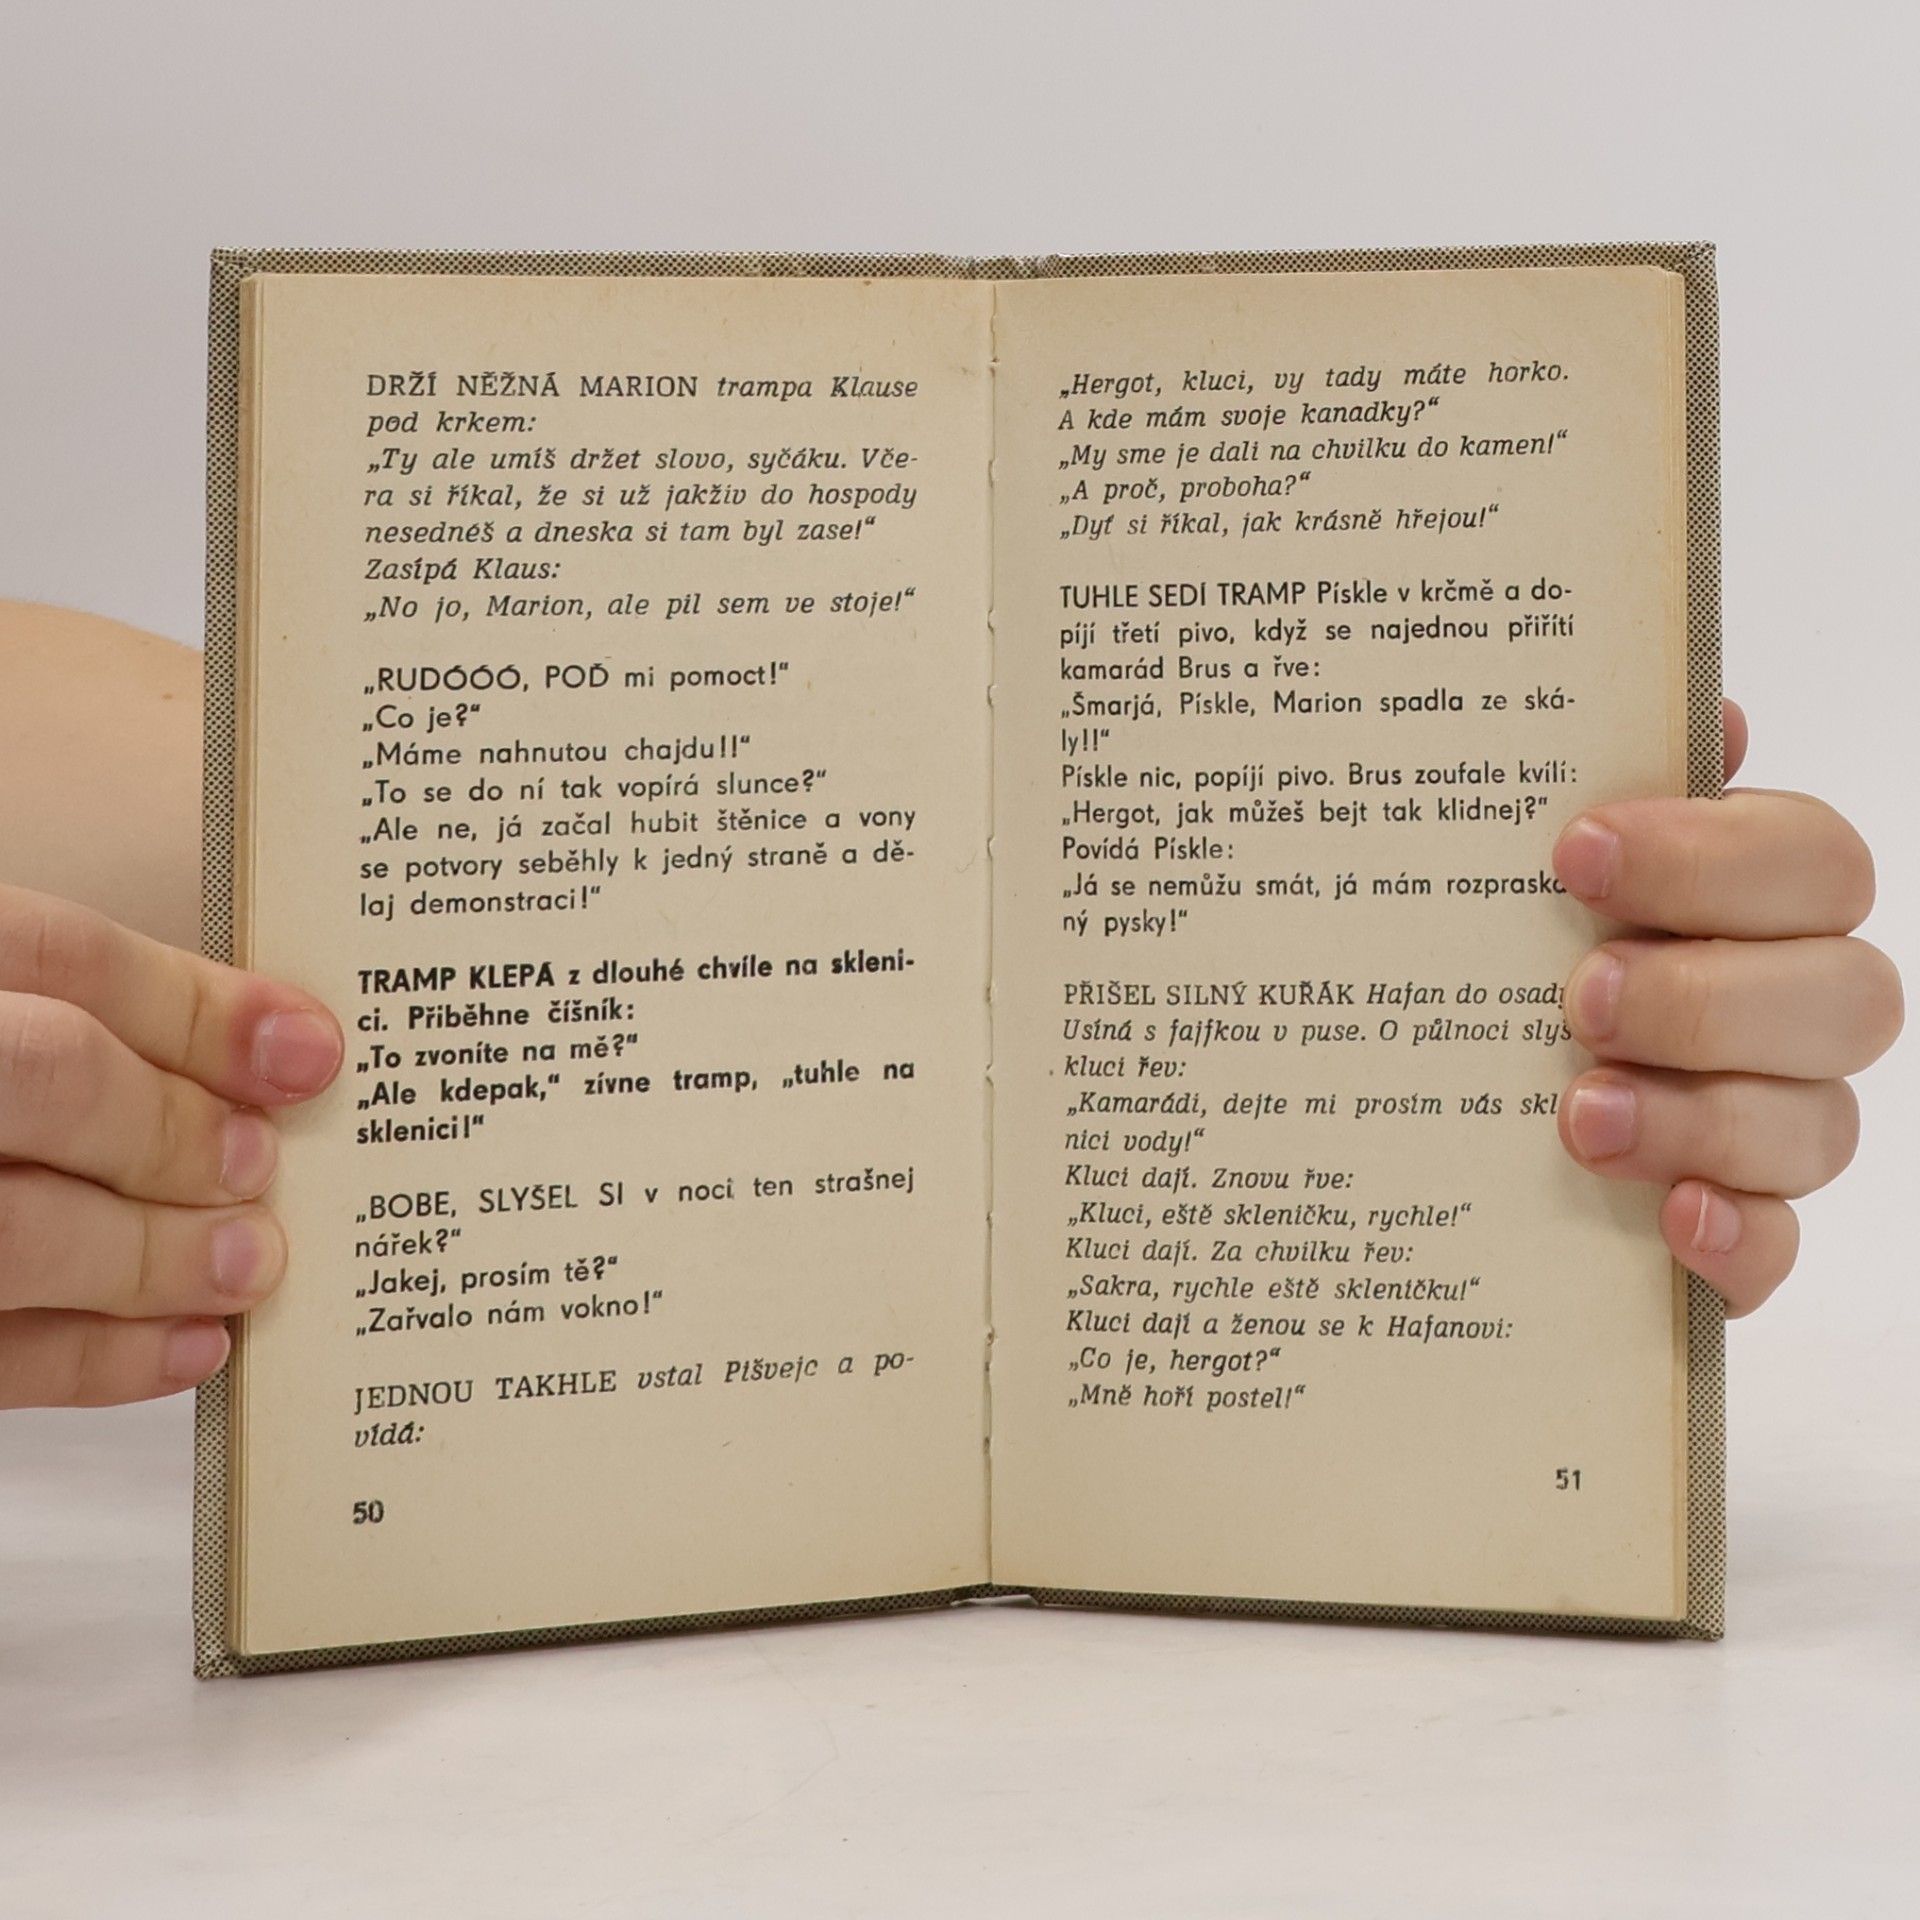 DRŽÍ NĚŽNÁ MARION trampa Klause
pod krkem:
„Ty ale umíš držet slovo, syčáku. Vče-
ra si říkal, že si už jakživ do hospody
nesednéš a dneska si tam byl zase!“
Zasípá Klaus:
„No jo, Marion, ale pil sem ve stoje!“
„RUDÓÓÓ, POĎ mi pomoct!“
„Co je?“
„Máme nahnutou chajdu!!“
„To se do ní tak vopírá slunce?“
„Ale ne, já začal hubit štěnice a vony
se potvory seběhly k jedný straně a dě-
laj demonstraci!“
TRAMP KLEPÁ z dlouhé chvíle na skleni-
ci. Přiběhne číšník:
„To zvoníte na mě?“
„Ale kdepak,“ zívne tramp, „tuhle na
sklenici!“
„BOBE, SLYŠEL SI v noci ten strašnej
nářek?“
„Jakej, prosím tě?“
„Zařvalo nám vokno!“
JEDNOU TAKHLE vstal Pišvejc a po-
vídá:
50
„Hergot, kluci, vy tady máte horko.
A kde mám svoje kanadky?“
„My sme je dali na chvilku do kamen!“
„A proč, proboha?“
„Dyť si říkal, jak krásně hřejou!“
TUHLE SEDÍ TRAMP Pískle v krčmě a do-
píjí třetí pivo, když se najednou přiřítí
kamarád Brus a řve:
„Šmarjá, Pískle, Marion spadla ze ská-
ly!!“
Pískle nic, popíjí pivo. Brus zoufale kvílí:
„Hergot, jak můžeš bejt tak klidnej?“
Povídá Pískle:
„Já se nemůžu smát, já mám rozpraska
ný pysky!“
PŘIŠEL SILNÝ KUŘÁK Hafan do osady
Usíná s fajfkou v puse. O půlnoci slyš
kluci řev:
„Kamarádi, dejte mi prosím vás skl
nici vody!“
Kluci dají. Znovu řve:
„Kluci, eště skleničku, rychle!“
Kluci dají. Za chvilku řev:
„Sakra, rychle eště skleničku!“
Kluci dají a ženou se k Hafanovi:
„Co je, hergot?“
„Mně hoří postel!“
51